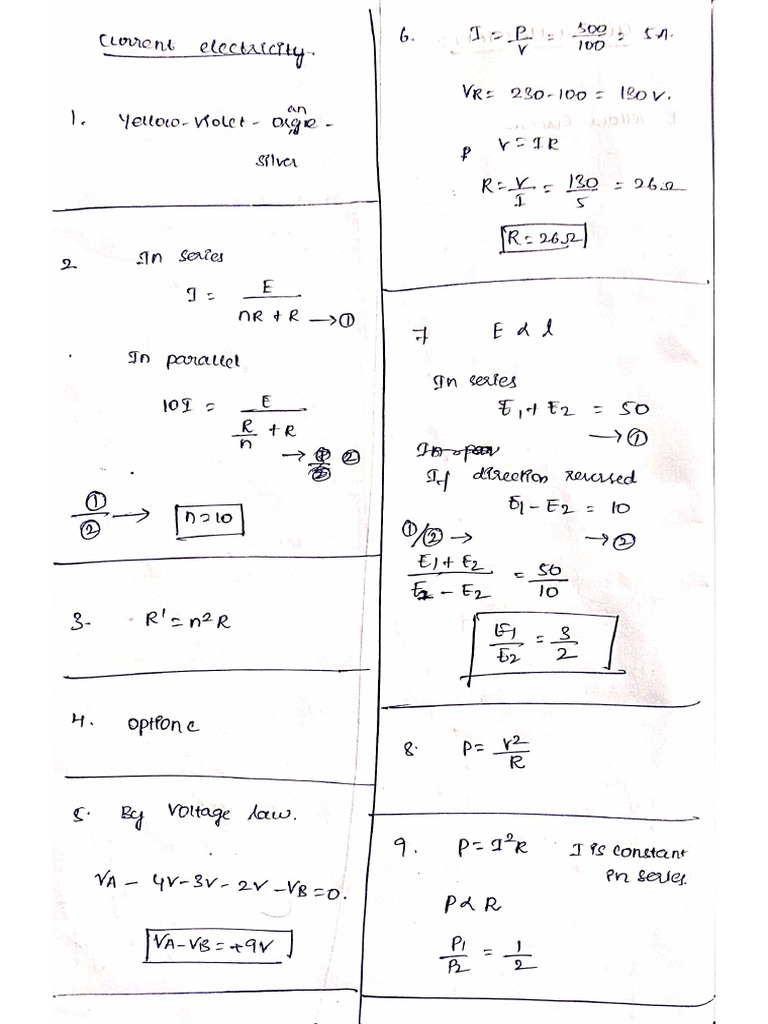 Current electricity.
1. Yellow-Violet-Orange-
an
Silver
2 In series
I = E / nR + R → ①
In parallel
10I = E / R/n + R
→ ②
①/② → n=10
3- R' = n²R
4. option c
5. By Voltage law.
VA - 4V-3V-2V -VB=0.
VA-VB=+9V
6. I = P/V = 500/100 = 5A.
VR = 230-100 = 130V.
V=IR
R = V/I = 130/5 = 26Ω
R=26Ω
7 E α l
In series
E1+E2 = 50
→ ①
If direction reversed
E1-E2 = 10
①/② → → ②
E1+E2 / E1-E2 = 50/10
E1/E2 = 3/2
8. P= V²/R
9. P=I²R I is constant
in series.
P α R
P1/P2 = 1/2